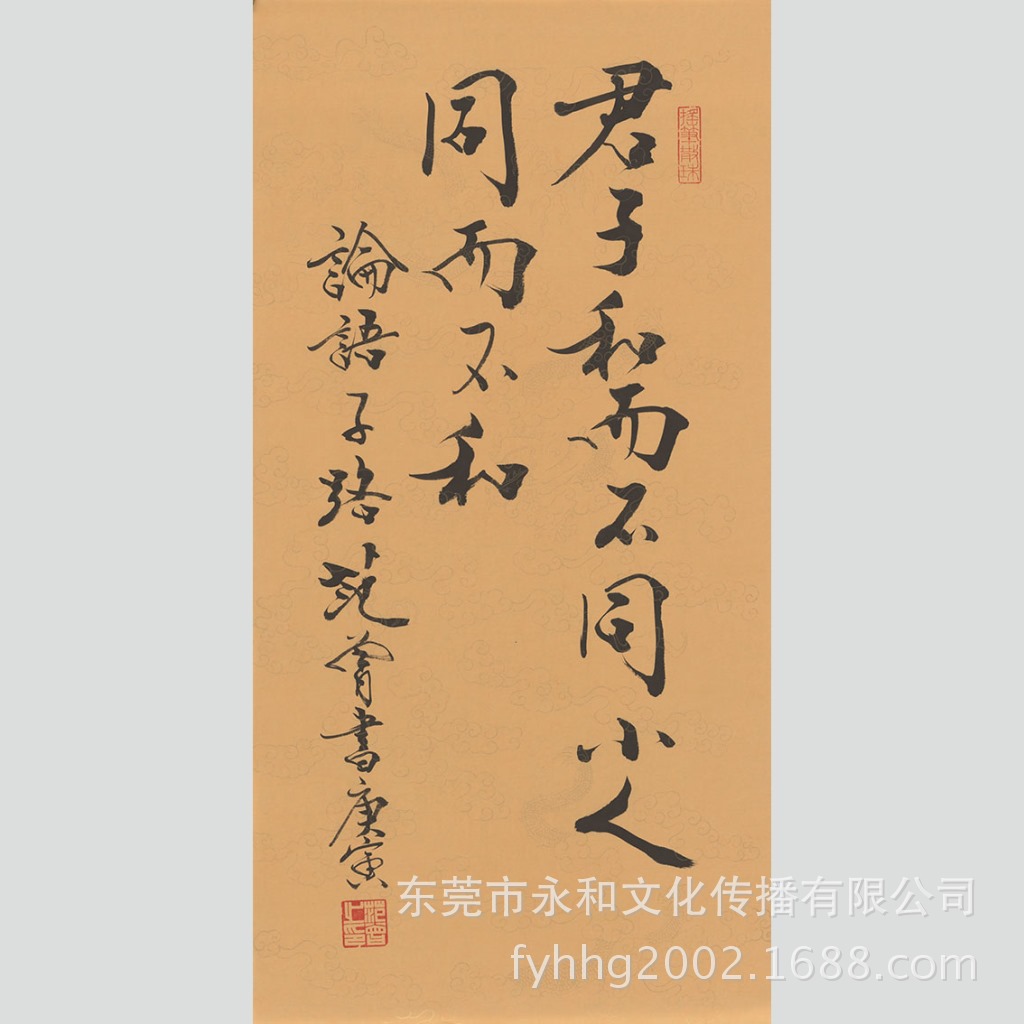 君子和而不同小人
同而不和
論語子路范曾書庚寅
搖筆散珠
范曾之印
东莞市永和文化传播有限公司
fyhhg2002.1688.com